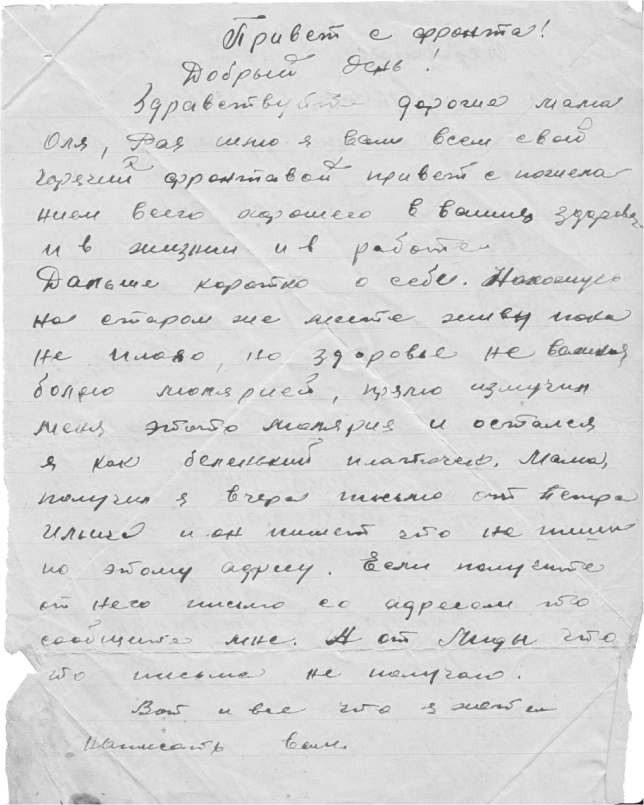 Привет с фронта!
Добрый день!
Здравствуйте дорогие мама
Оля, Рая шлю я вам всем свой
горячий фронтавой привет с пожела
нием всего хорошего в вашия здоровье
и в жизнии и в работе
Дальше коротко о себе. Нахожусь
на старом же месте живу пока
не плохо, но здоровье не важная
болею молярией, прямо измучил
меня этото молярия и остался
я как беленький платочек. Мама,
получил я вчера письмо от Петра
Ильича и он пишет что не пиши
по этому адресу. Если получите
от него письмо со адресом то
сообщите мне. А от Лиды что
то письма не получаю.
Вот и все что я хотел
написать вам.